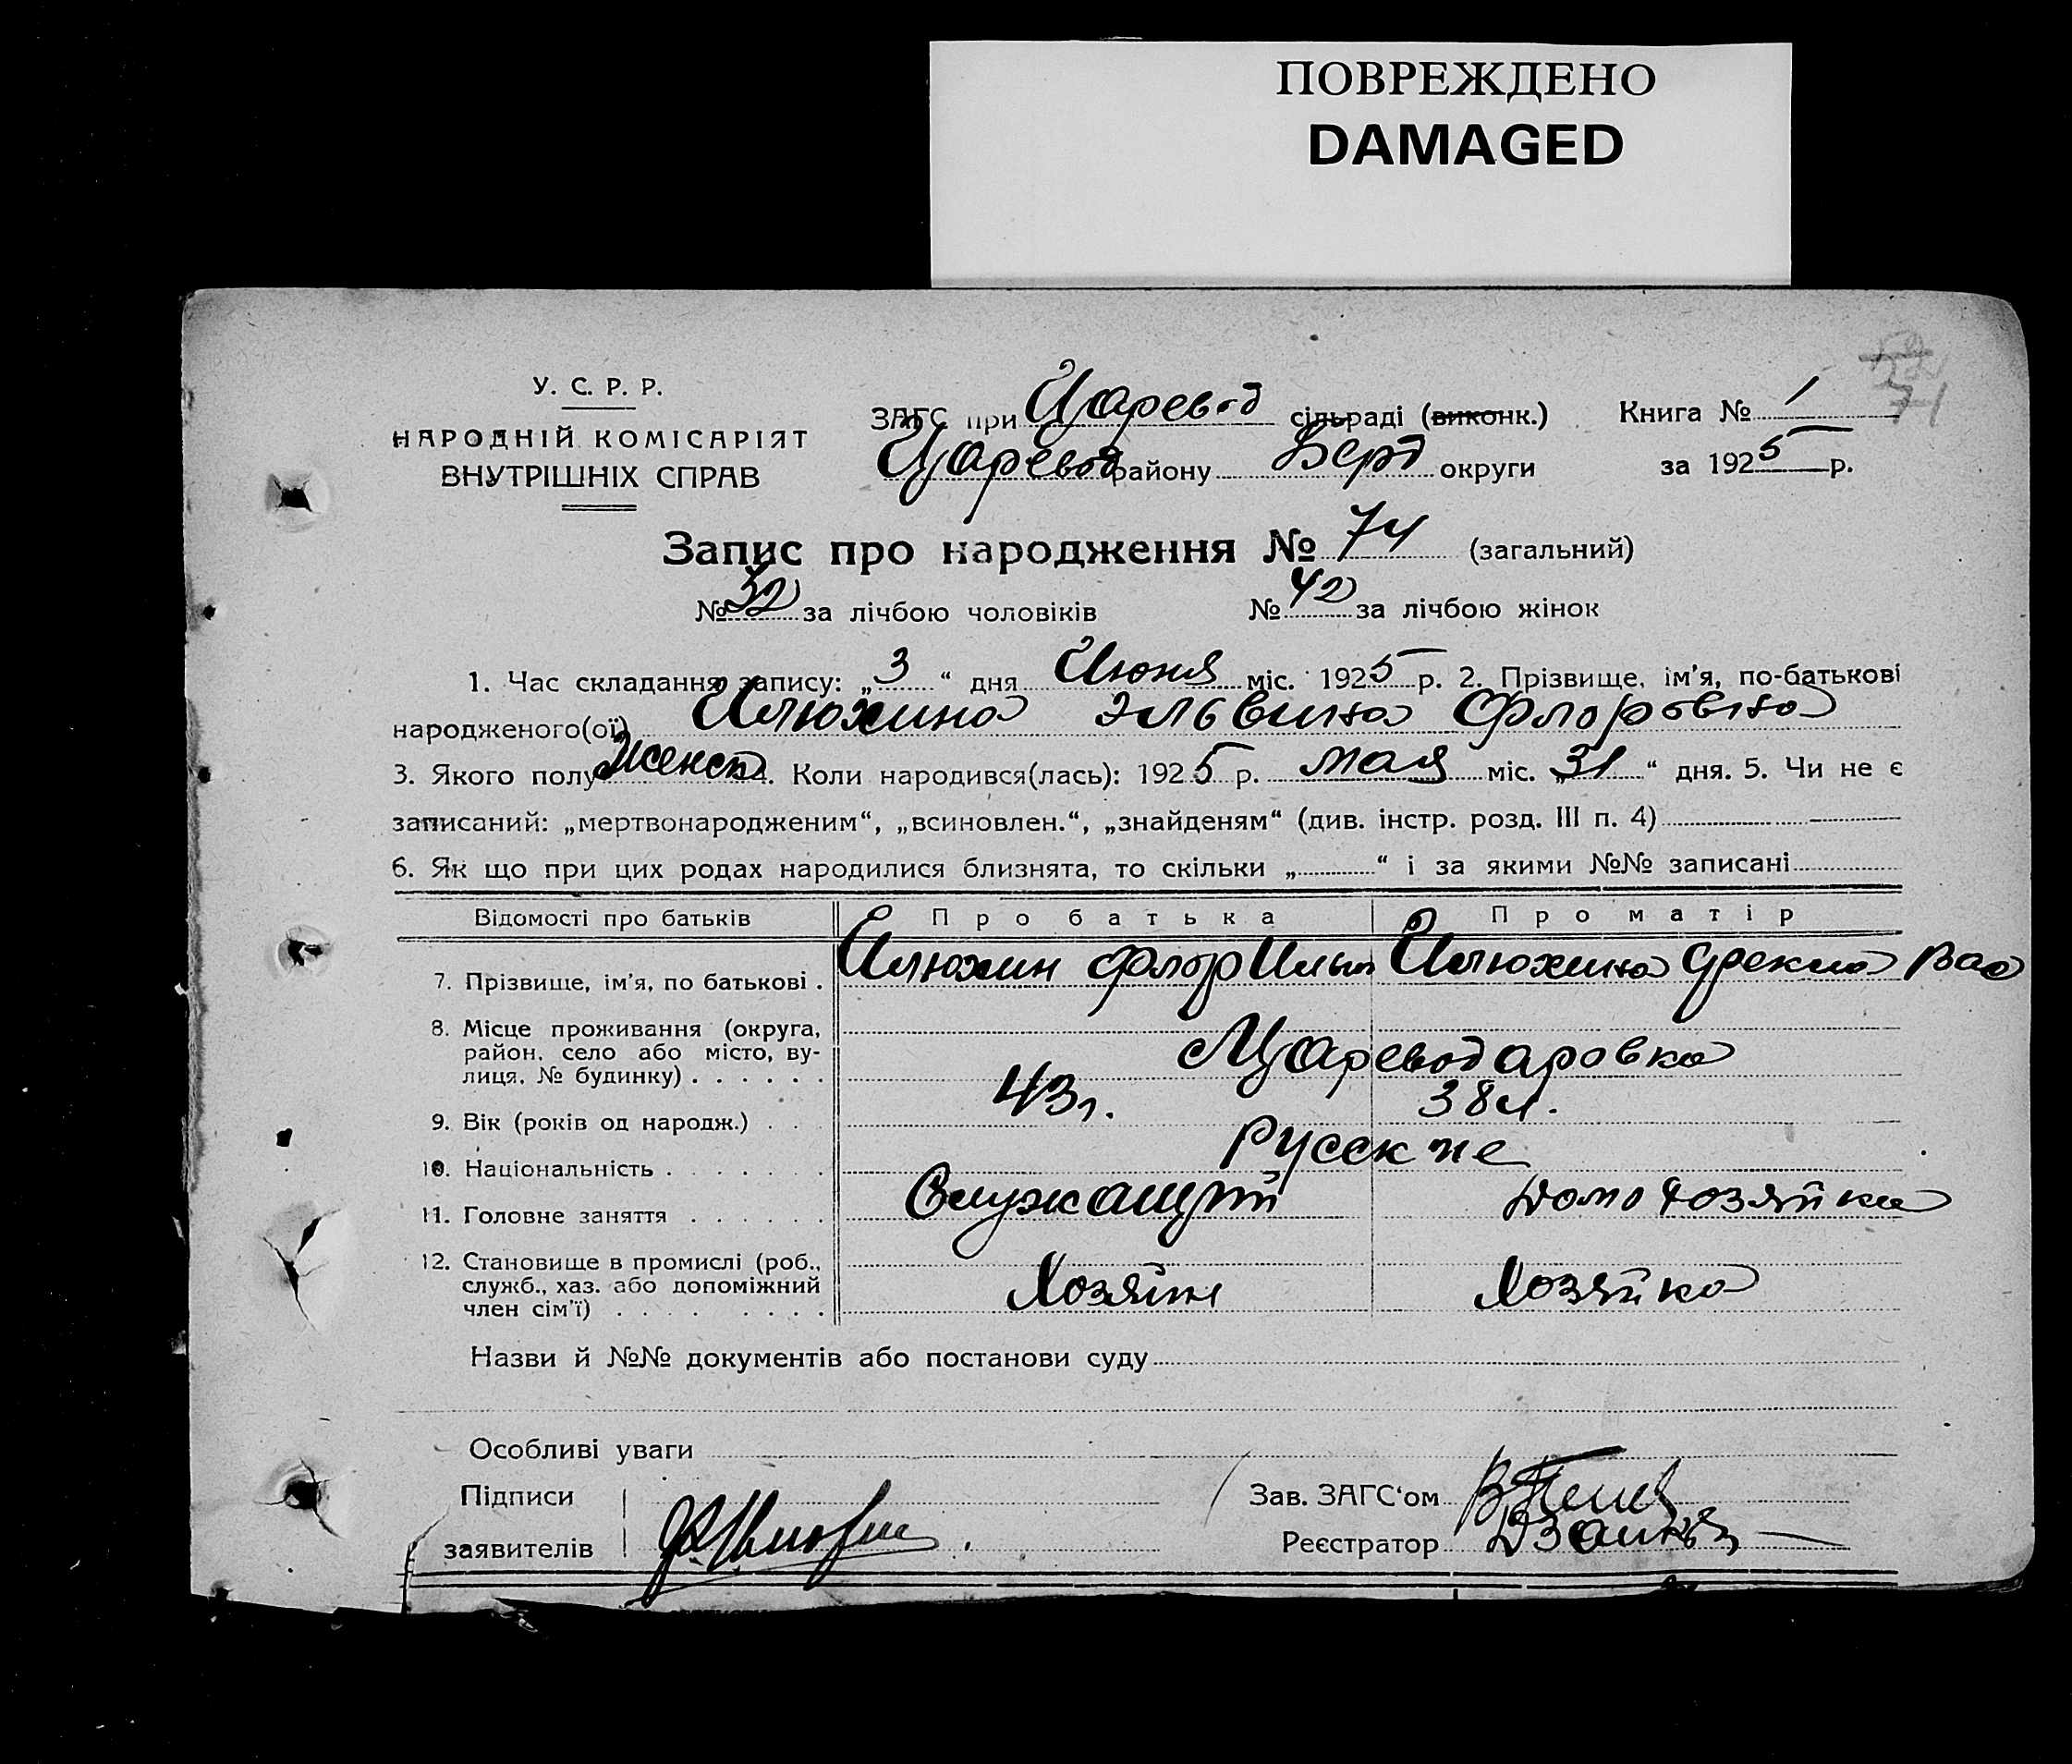 ПОВРЕЖДЕНО
DAMAGED
71
У. С. Р. Р.
НАРОДНІЙ КОМІСАРІЯТ
ВНУТРІШНІХ СПРАВ
ЗАГС при Царевод сільраді (виконк.) Книга № 1
Царевод району Берд округи за 1925 р.
Запис про народження № 74 (загальний)
№ 32 за лічбою чоловіків № 42 за лічбою жінок
1. Час складання запису: „3“ дня Июня міс. 1925 р. 2. Прізвище, ім’я, по-батькові
народженого(ої) Илюхина Эльвина Флоровна
3. Якого полу Женск 4. Коли народився(лась): 1925 р. мая міс. „31“ дня. 5. Чи не є
записаний: „мертвонародженим“, „всиновлен.“, „знайденям“ (див. інстр. розд. III п. 4)
6. Як що при цих родах народилися близнята, то скільки „ “ і за якими №№ записані
Відомості про батьків Про батька Про матір
7. Прізвище, ім’я, по батькові . Илюхин Флор Ильи Илюхина Фекла Вас
8. Місце проживання (округа,
район, село або місто, ву-
лиця, № будинку) . . . . . . Цареводаровка
9. Вік (років од народж.) . . . 43 г. 38 л.
10. Національність . . . . . . . Русские
11. Головне заняття . . . . . . Служащий Домохозяйка
12. Становище в промислі (роб.,
служб., хаз. або допоміжний
член сім’ї) . . . . . . . . . Хозяин Хозяйка
Назви й №№ документів або постанови суду
Особливі уваги
Підписи
заявителів
Зав. ЗАГС‘ом
Реєстратор